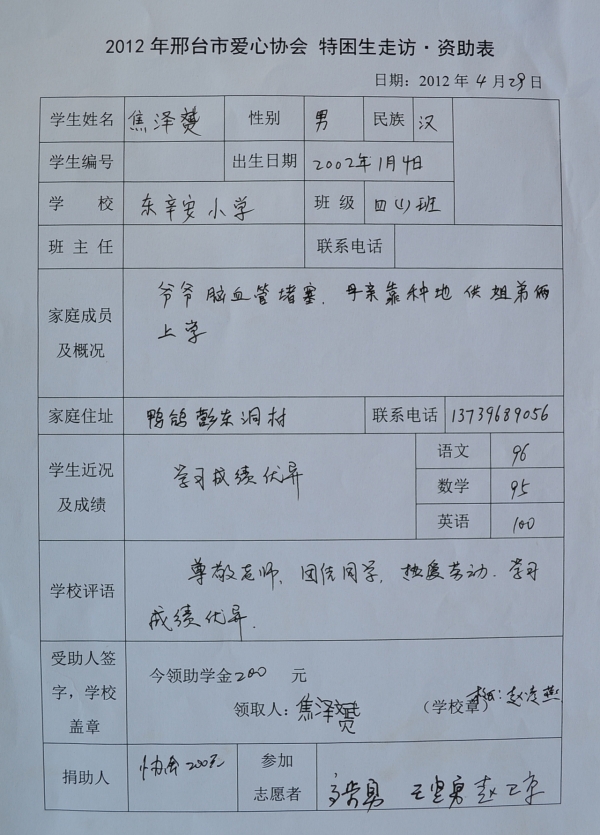 2012 年邢台市爱心协会 特困生走访·资助表
日期：2012 年 4 月 29 日
学生姓名 焦泽赟 性别 男 民族 汉
学生编号 出生日期 2002年1月4日
学 校 东辛安小学 班 级 四(1)班
班 主 任 联系电话
家庭成员及概况 爷爷脑血管堵塞．母亲靠种地 供姐弟俩
上学
家庭住址 鸭鸽 东洞村 联系电话 13739689056
学生近况及成绩 学习成绩优异
语文 96
数学 95
英语 100
学校评语 尊敬老师、团结同学，热爱劳动．学习
成绩优异．
受助人签字，学校盖章 今领助学金200 元
领取人：焦泽赟 （学校章） 赵凌燕
捐助人 协会200元 参加志愿者